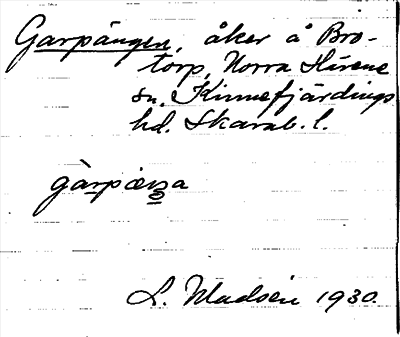 Garpängen, åker å Bro-
torp, Norra Härene
sn. Kinnefjärdings
hd. Skarab. l.
L. Madsén 1930.